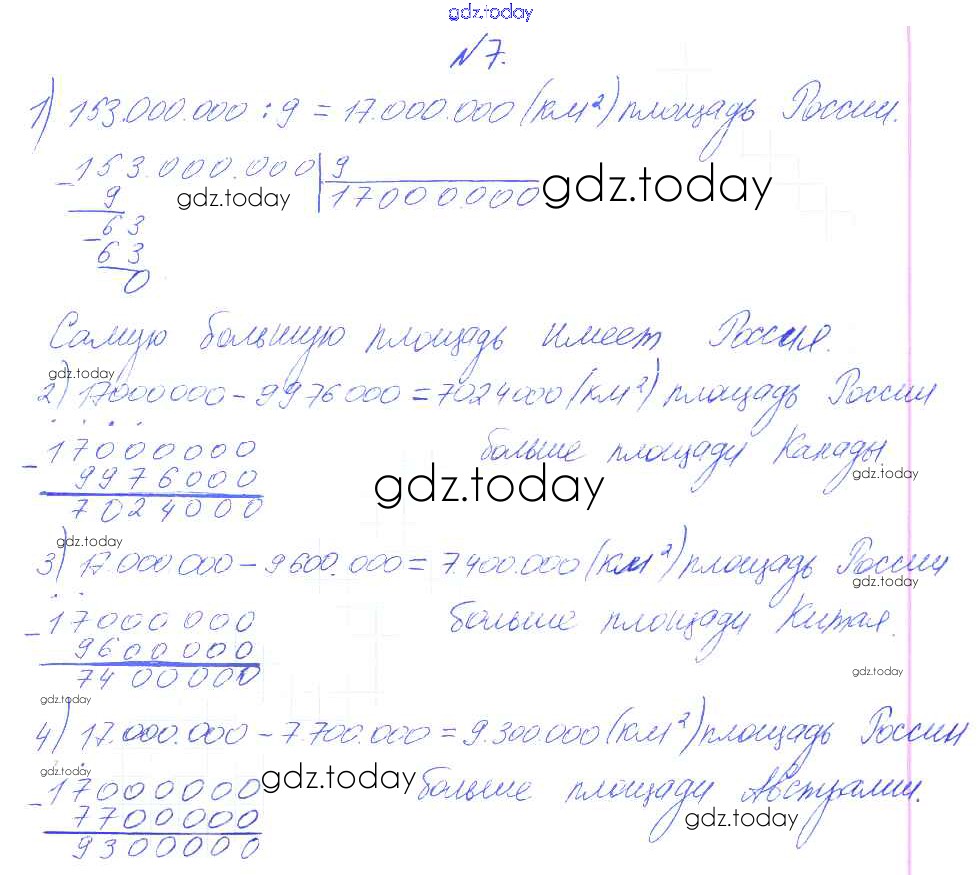 gdz.today
№7.
1) 153.000.000 : 9 = 17.000.000 (км²) площадь России.
153.000.000 | 9
- 9 gdz.today 17000.000 gdz.today
63
- 63
0
Самую большую площадь имеет Россия.
gdz.today
2) 17000000 - 9976000 = 7024000 (км²) площадь России
- 17000000 больше площади Канады.
9976000 gdz.today gdz.today
7024000
gdz.today
3) 17.000.000 - 9600.000 = 7.400.000 (км²) площадь России
gdz.today
- 17000000 больше площади Китая.
9600000
7400000 gdz.today
gdz.today
4) 17.000.000 - 7.700.000 = 9.300.000 (км²) площадь России
gdz.today gdz.today
- 17000000 больше площади Австралии.
7700000 gdz.today
9300000